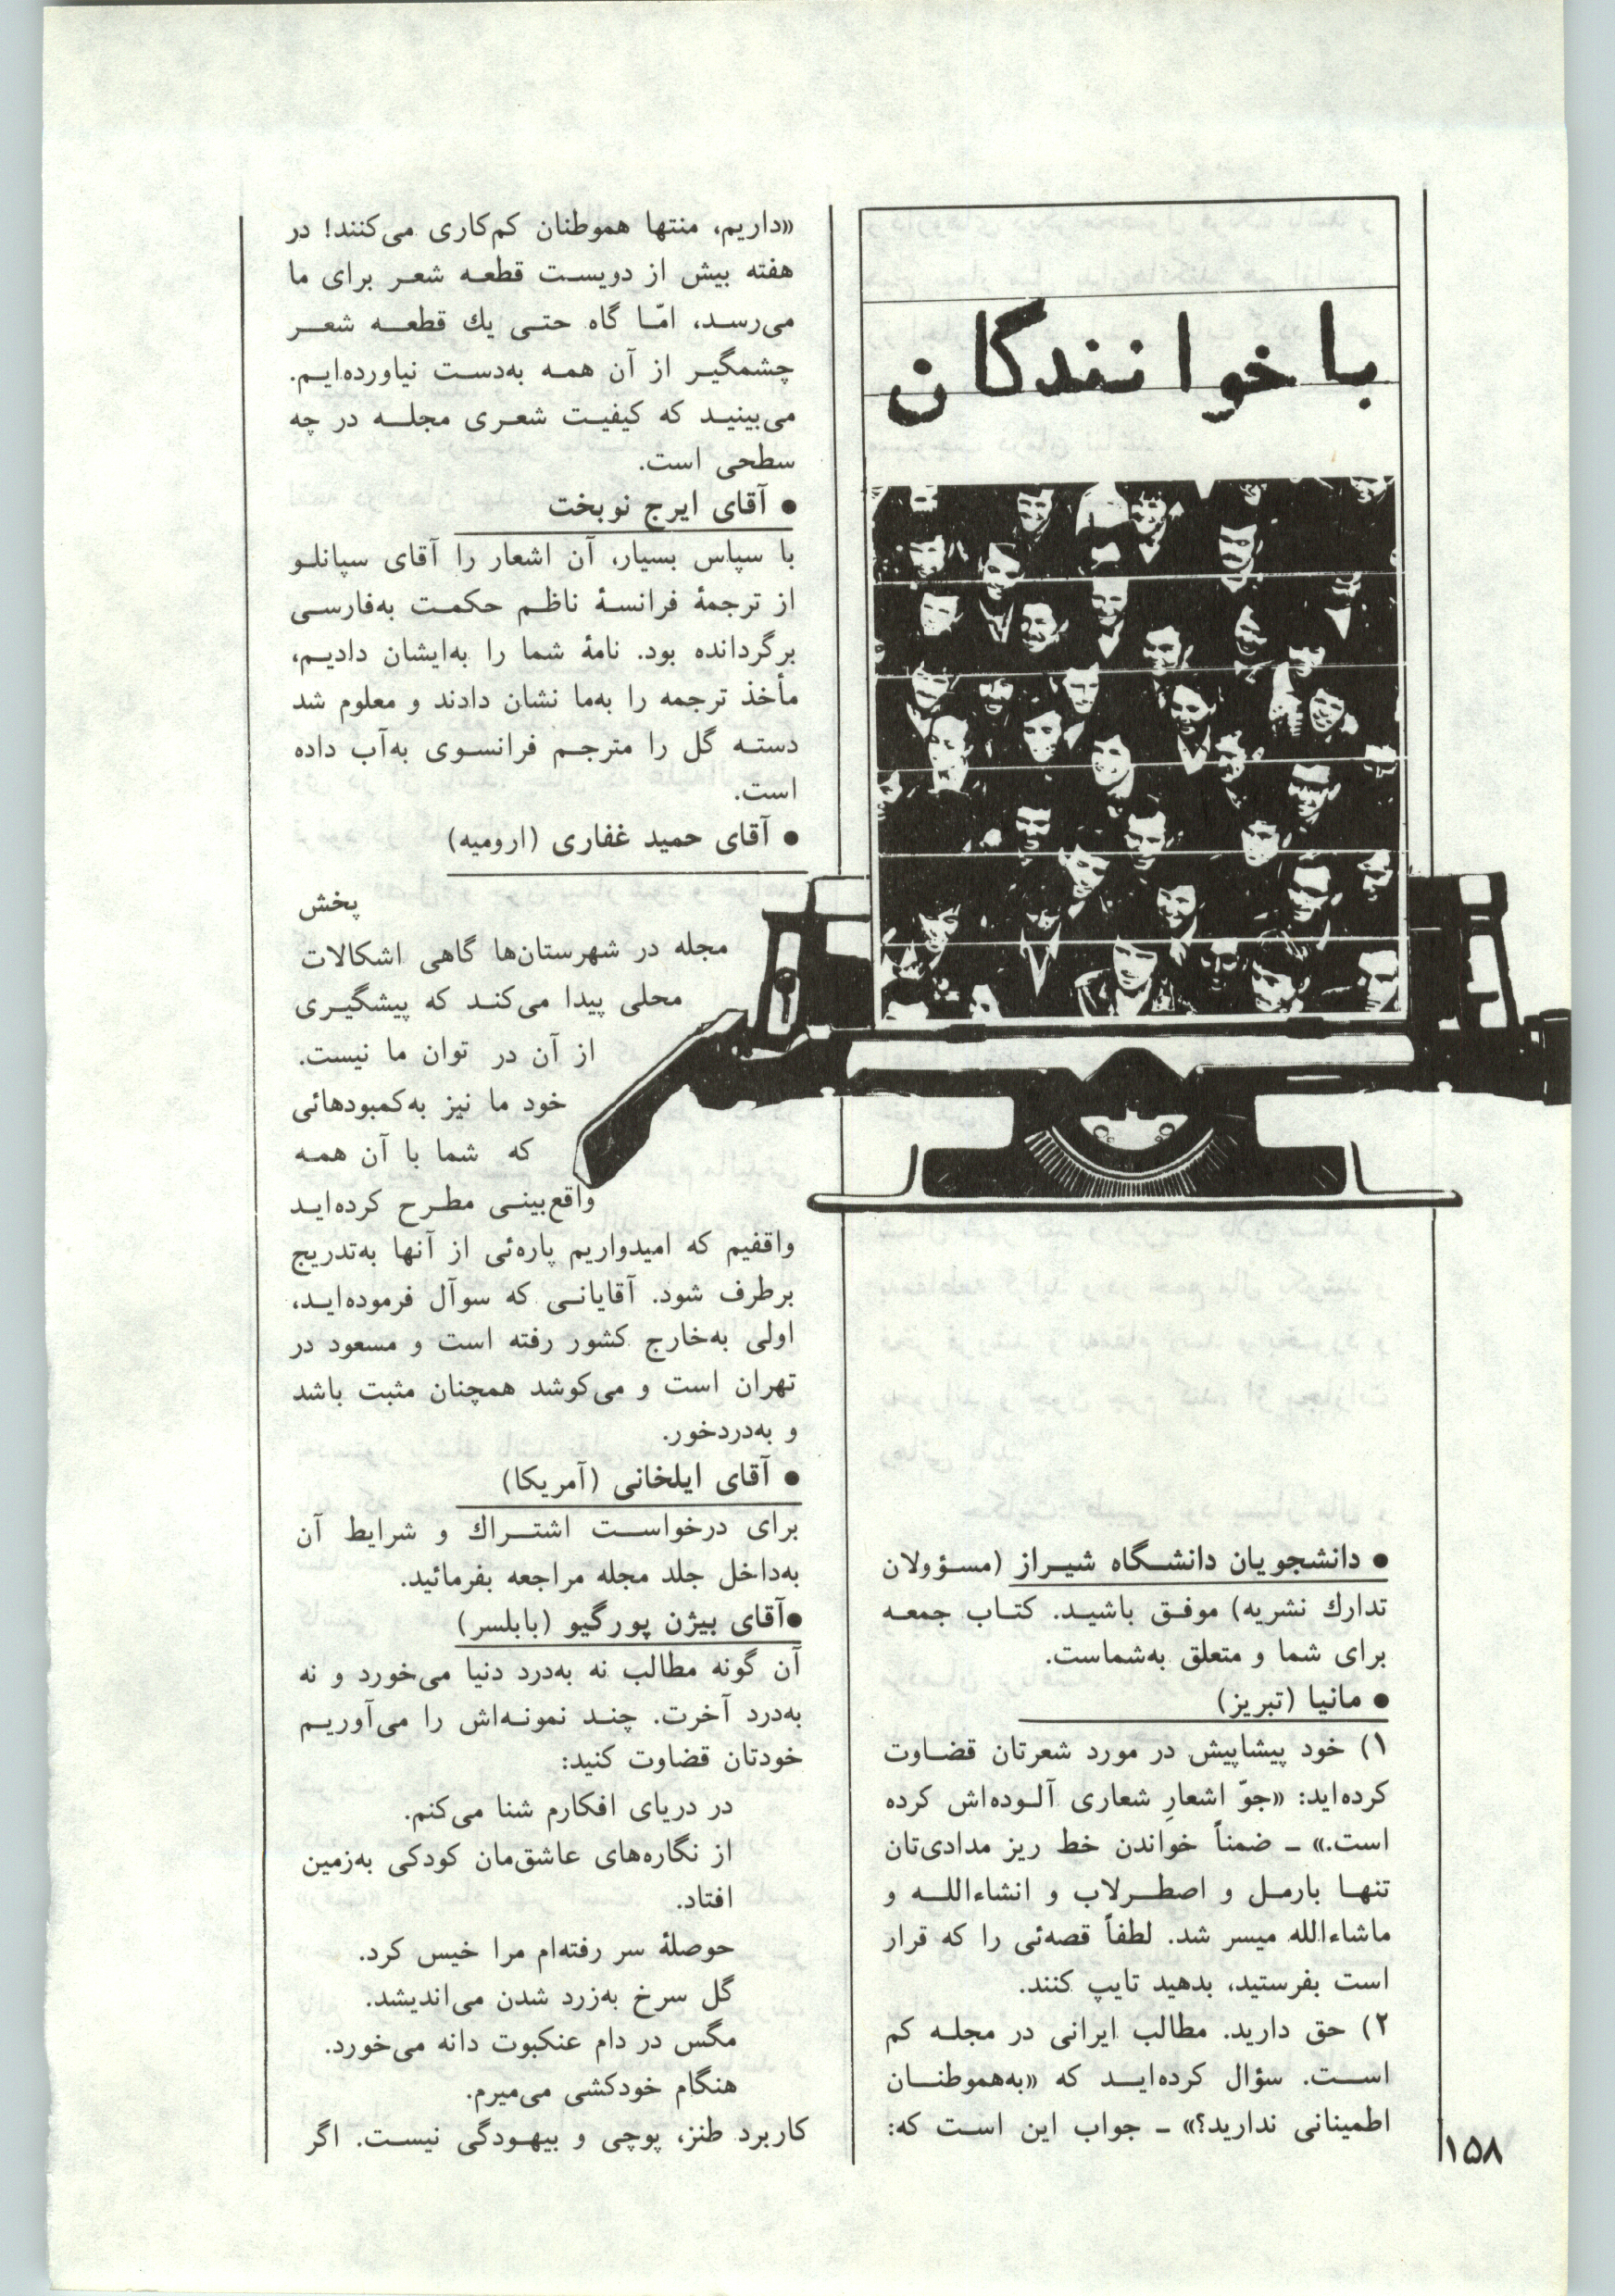 با خوانندگان
● دانشجویان دانشگاه شیراز (مسؤولان
تدارك نشریه) موفق باشید. کتاب جمعه
برای شما و متعلق به‌شماست.
● مانیا (تبریز)
۱) خود پیشاپیش در مورد شعرتان قضاوت
کرده‌اید: «جوّ اشعارِ شعاری آلوده‌اش کرده
است.» ـ ضمناً خواندن خط ریز مدادی‌تان
تنها بارمل و اصطرلاب و انشاءالله و
ماشاءالله میسر شد. لطفاً قصه‌ئی را که قرار
است بفرستید، بدهید تایپ کنند.
۲) حق دارید. مطالب ایرانی در مجله کم
است. سؤال کرده‌اید که «به‌هموطنان
اطمینانی ندارید؟» ـ جواب این است که:
«داریم، منتها هموطنان کم‌کاری می‌کنند! در
هفته بیش از دویست قطعه شعر برای ما
می‌رسد، امّا گاه حتی یك قطعه شعر
چشمگیر از آن همه به‌دست نیاورده‌ایم.
می‌بینید که کیفیت شعری مجله در چه
سطحی است.
● آقای ایرج نوبخت
با سپاس بسیار، آن اشعار را آقای سپانلو
از ترجمهٔ فرانسهٔ ناظم حکمت به‌فارسی
برگردانده بود. نامهٔ شما را به‌ایشان دادیم،
مأخذ ترجمه را به‌ما نشان دادند و معلوم شد
دسته گل را مترجم فرانسوی به‌آب داده
است.
● آقای حمید غفاری (ارومیه)
پخش
مجله در شهرستان‌ها گاهی اشکالات
محلی پیدا می‌کند که پیشگیری
از آن در توان ما نیست.
خود ما نیز به‌کمبودهائی
که شما با آن همه
واقع‌بینی مطرح کرده‌اید
واقفیم که امیدواریم پاره‌ئی از آنها به‌تدریج
برطرف شود. آقایانی که سوآل فرموده‌اید،
اولی به‌خارج کشور رفته است و مسعود در
تهران است و می‌کوشد همچنان مثبت باشد
و به‌دردخور.
● آقای ایلخانی (آمریکا)
برای درخواست اشتراك و شرایط آن
به‌داخل جلد مجله مراجعه بفرمائید.
●آقای بیژن پورگیو (بابلسر)
آن گونه مطالب نه به‌درد دنیا می‌خورد و نه
به‌درد آخرت. چند نمونه‌اش را می‌آوریم
خودتان قضاوت کنید:
در دریای افکارم شنا می‌کنم.
از نگاره‌های عاشق‌مان کودکی به‌زمین
افتاد.
حوصلهٔ سر رفته‌ام مرا خیس کرد.
گل سرخ به‌زرد شدن می‌اندیشد.
مگس در دام عنکبوت دانه می‌خورد.
هنگام خودکشی می‌میرم.
کاربرد طنز، پوچی و بیهودگی نیست. اگر
۱۵۸